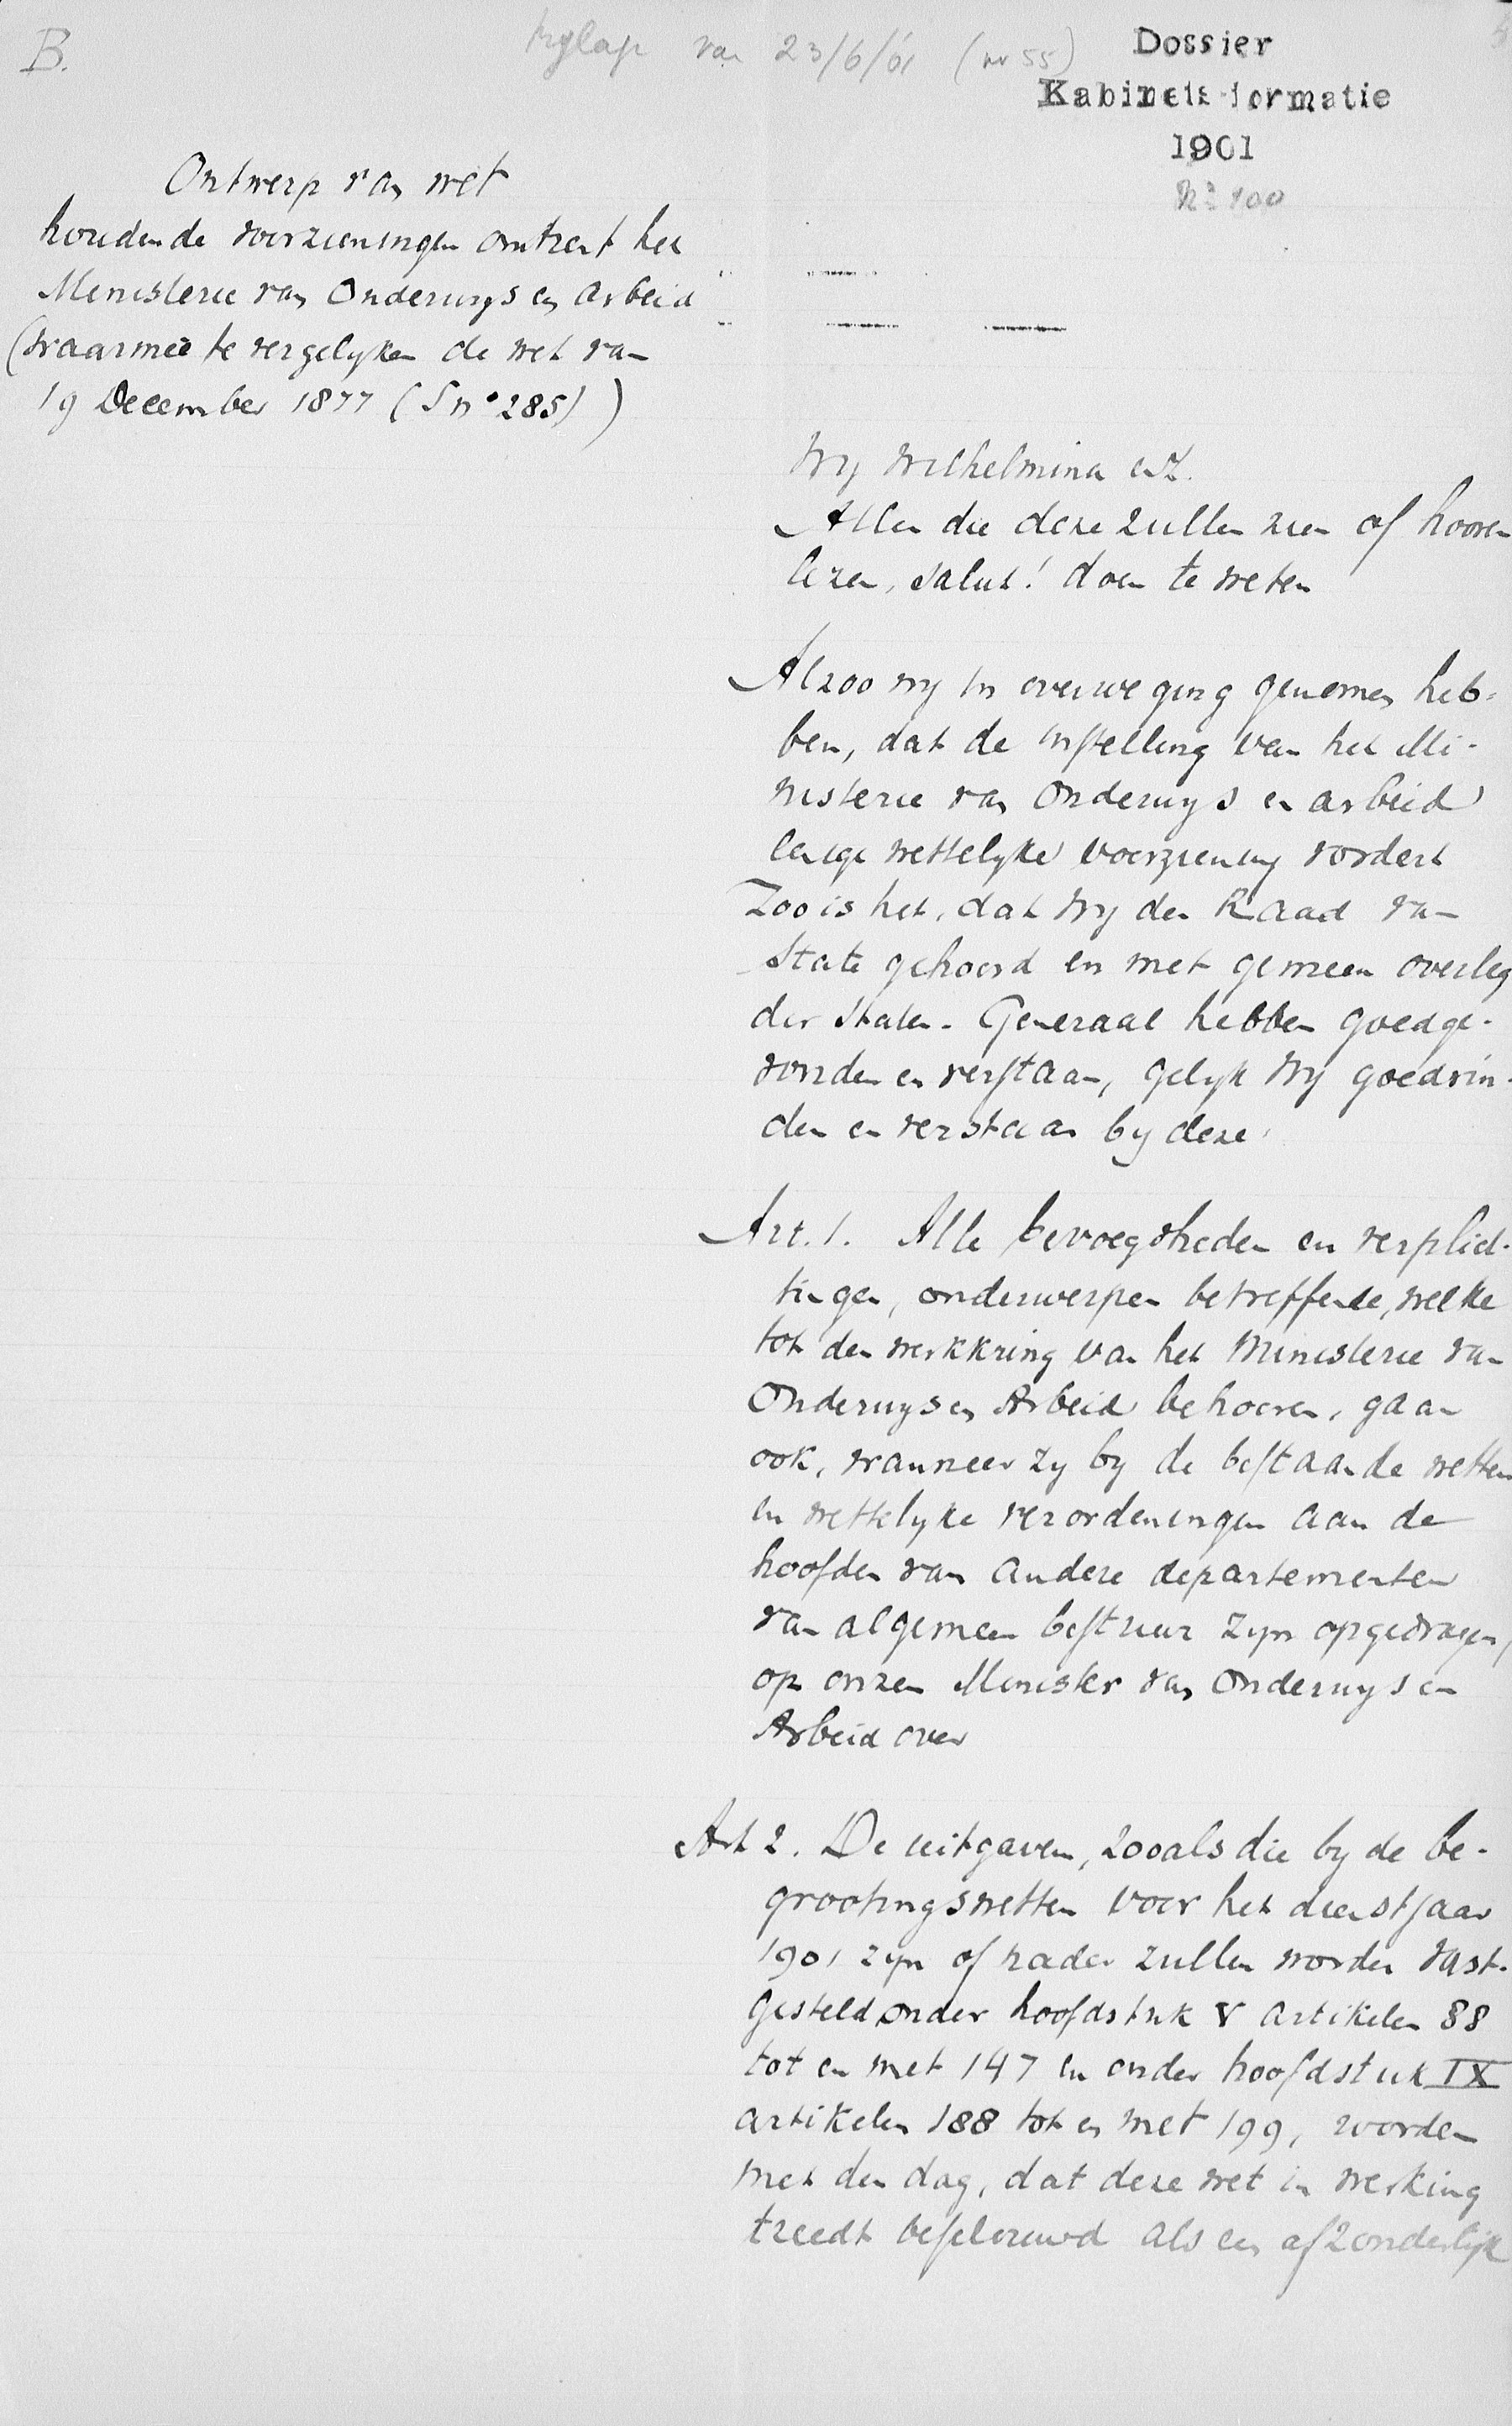 B.
bijlage van 23/6/01 (nr 55)
Dossier
Kabinetsformatie
1901
No 100
Ontwerp van wet
houdende voorzieningen omtrent het
Ministerie van Onderwijs en Arbeid
(waarmee te vergelijken de wet van
19 December 1877 (S no 285))
Wij Wilhelmina enz.
Allen die deze zullen zien of hooren
lezen, salut! doen te weten
Alzoo wij in overweging genomen heb-
ben, dat de instelling van het Mi-
nisterie van Onderwijs en arbeid
eenige wettelijke voorziening vordert
Zoo is het, dat Wij den Raad van
State gehoord en met gemeen overleg
der Staten-Generaal hebben goedge-
vonden en verstaan, gelijk Wij goedvin-
den en verstaan bij deze:
Art. 1. Alle bevoegdheden en verplich-
tingen, onderwerpen betreffende, welke
tot den werkkring van het Ministerie van
Onderwijs en Arbeid behooren, gaan
ook, wanneer zij bij de bestaande wetten
en wettelijke verordeningen aan de
hoofden van andere departementen
van algemeen bestuur zijn opgedragen,
op onzen Minister van Onderwijs en
Arbeid over
Art 2. De uitgaven, zooals die bij de be-
grootingswetten voor het dienstjaar
1901 zijn of nader zullen worden vast-
gesteld onder hoofdstuk V artikelen 88
tot en met 147 en onder hoofdstuk IX
artikelen 188 tot en met 199, worden
met den dag, dat deze wet in werking
treedt beschouwd als een afzonderlijk